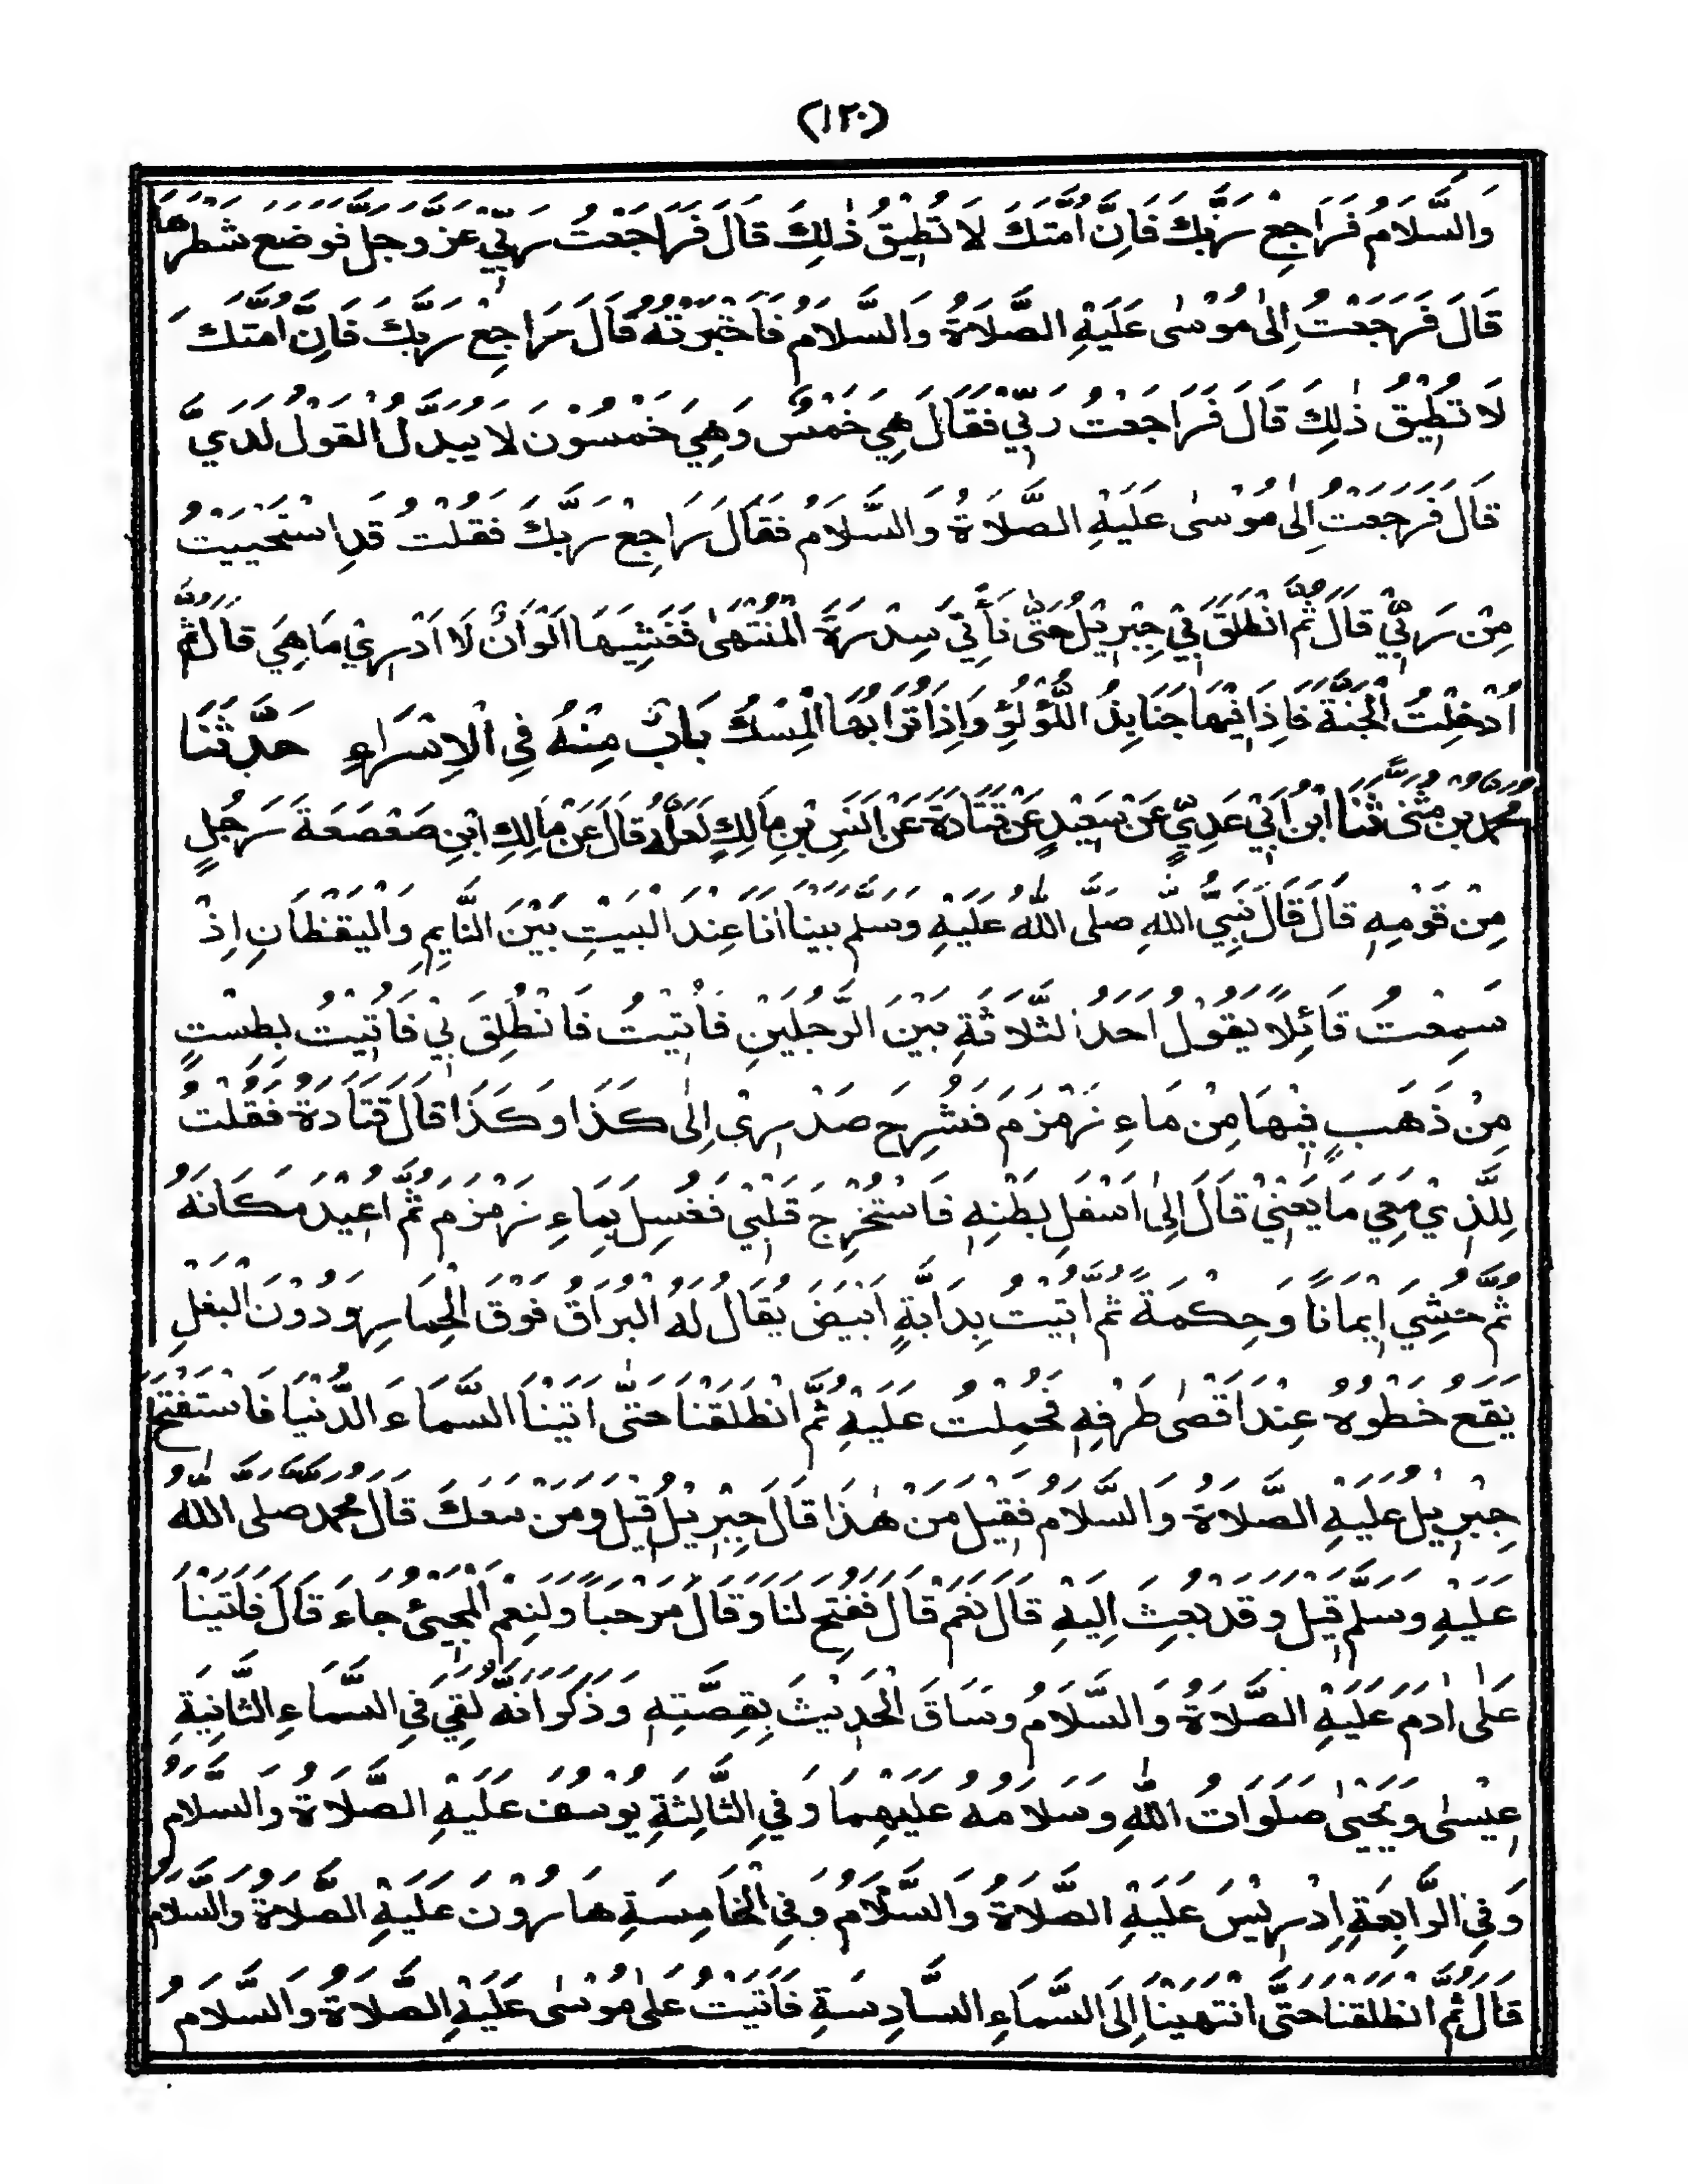 (١٢٠)
وَالسَّلَامُ فَرَاجِعْ رَبَّكَ فَاِنَّ اُمَّتَكَ لَا تُطِيْقُ ذٰلِكَ قَالَ فَرَاجَعْتُ رَبِّيْ عَزَّ وَجَلَّ فَوَضَعَ شَطْرَهَا
قَالَ فَرَجَعْتُ اِلٰى مُوْسٰى عَلَيْهِ الصَّلَاةُ وَالسَّلَامُ فَاَخْبَرْتُهُ قَالَ رَاجِعْ رَبَّكَ فَاِنَّ اُمَّتَكَ
لَا تُطِيْقُ ذٰلِكَ قَالَ فَرَاجَعْتُ رَبِّيْ فَقَالَ هِيَ خَمْسٌ وَهِيَ خَمْسُوْنَ لَا يُبَدَّلُ الْقَوْلُ لَدَيَّ
قَالَ فَرَجَعْتُ اِلٰى مُوْسٰى عَلَيْهِ الصَّلَاةُ وَالسَّلَامُ فَقَالَ رَاجِعْ رَبَّكَ فَقُلْتُ قَدِ اسْتَحْيَيْتُ
مِنْ رَبِّيْ قَالَ ثُمَّ انْطَلَقَ بِيْ جِبْرِيْلُ حَتّٰى نَأْتِيَ سِدْرَةَ الْمُنْتَهٰى فَغَشِيَهَا اَلْوَانٌ لَا اَدْرِيْ مَا هِيَ قَالَ ثُمَّ
اُدْخِلْتُ الْجَنَّةَ فَاِذَا فِيْهَا جَنَابِذُ اللُّؤْلُؤِ وَاِذَا تُرَابُهَا الْمِسْكُ بَابٌ مِنْهُ فِي الْاِسْرَاءِ حَدَّثَنَا
مُحَمَّدُ بْنُ مُثَنّٰى ثَنَا ابْنُ اَبِيْ عَدِيٍّ عَنْ سَعِيْدٍ عَنْ قَتَادَةَ عَنْ اَنَسِ بْنِ مَالِكٍ لَعَلَّهُ قَالَ عَنْ مَالِكِ ابْنِ صَعْصَعَةَ رَجُلٍ
مِنْ قَوْمِهٖ قَالَ قَالَ نَبِيُّ اللّٰهِ صَلَّى اللّٰهُ عَلَيْهِ وَسَلَّمَ بَيْنَا اَنَا عِنْدَ الْبَيْتِ بَيْنَ النَّايِمِ وَالْيَقْظَانِ اِذْ
سَمِعْتُ قَائِلًا يَقُوْلُ اَحَدُ الثَّلَاثَةِ بَيْنَ الرَّجُلَيْنِ فَاُتِيْتُ فَانْطُلِقَ بِيْ فَاُتِيْتُ بِطِسْتٍ
مِنْ ذَهَبٍ فِيْهَا مِنْ مَاءِ زَمْزَمَ فَشُرِحَ صَدْرِيْ اِلٰى كَذَا وَكَذَا قَالَ قَتَادَةُ فَقُلْتُ
لِلَّذِيْ مَعِيَ مَا يَعْنِيْ قَالَ اِلٰى اَسْفَلِ بَطْنِهٖ فَاسْتُخْرِجَ قَلْبِيْ فَغُسِلَ بِمَاءِ زَمْزَمَ ثُمَّ اُعِيْدَ مَكَانَهُ
ثُمَّ حُشِيَ اِيْمَانًا وَحِكْمَةً ثُمَّ اُتِيْتُ بِدَابَّةٍ اَبْيَضَ يُقَالُ لَهُ الْبُرَاقُ فَوْقَ الْحِمَارِ وَدُوْنَ الْبَغْلِ
يَقَعُ خَطْوُهُ عِنْدَ اَقْصٰى طَرْفِهٖ فَحُمِلْتُ عَلَيْهِ ثُمَّ انْطَلَقْنَا حَتّٰى اَتَيْنَا السَّمَاءَ الدُّنْيَا فَاسْتَفْتَحَ
جِبْرِيْلُ عَلَيْهِ الصَّلَاةُ وَالسَّلَامُ فَقِيْلَ مَنْ هٰذَا قَالَ جِبْرِيْلُ قِيْلَ وَمَنْ مَعَكَ قَالَ مُحَمَّدٌ صَلَّى اللّٰهُ
عَلَيْهِ وَسَلَّمَ قِيْلَ وَقَدْ بُعِثَ اِلَيْهِ قَالَ نَعَمْ قَالَ فَفُتِحَ لَنَا وَقَالَ مَرْحَبًا وَلَنِعْمَ الْمَجِيْئُ جَاءَ قَالَ فَاَتَيْنَا
عَلٰى اٰدَمَ عَلَيْهِ الصَّلَاةُ وَالسَّلَامُ وَسَاقَ الْحَدِيْثَ بِقِصَّتِهٖ وَذَكَرَ اَنَّهُ لَقِيَ فِي السَّمَاءِ الثَّانِيَةِ
عِيْسٰى وَيَحْيٰى صَلَوَاتُ اللّٰهِ وَسَلَامُهُ عَلَيْهِمَا وَفِي الثَّالِثَةِ يُوْسُفَ عَلَيْهِ الصَّلَاةُ وَالسَّلَامُ
وَفِي الرَّابِعَةِ اِدْرِيْسَ عَلَيْهِ الصَّلَاةُ وَالسَّلَامُ وَفِي الْخَامِسَةِ هَارُوْنَ عَلَيْهِ الصَّلَاةُ وَالسَّلَامُ
قَالَ ثُمَّ انْطَلَقْنَا حَتّٰى انْتَهَيْنَا اِلَى السَّمَاءِ السَّادِسَةِ فَاَتَيْتُ عَلٰى مُوْسٰى عَلَيْهِ الصَّلَاةُ وَالسَّلَامُ